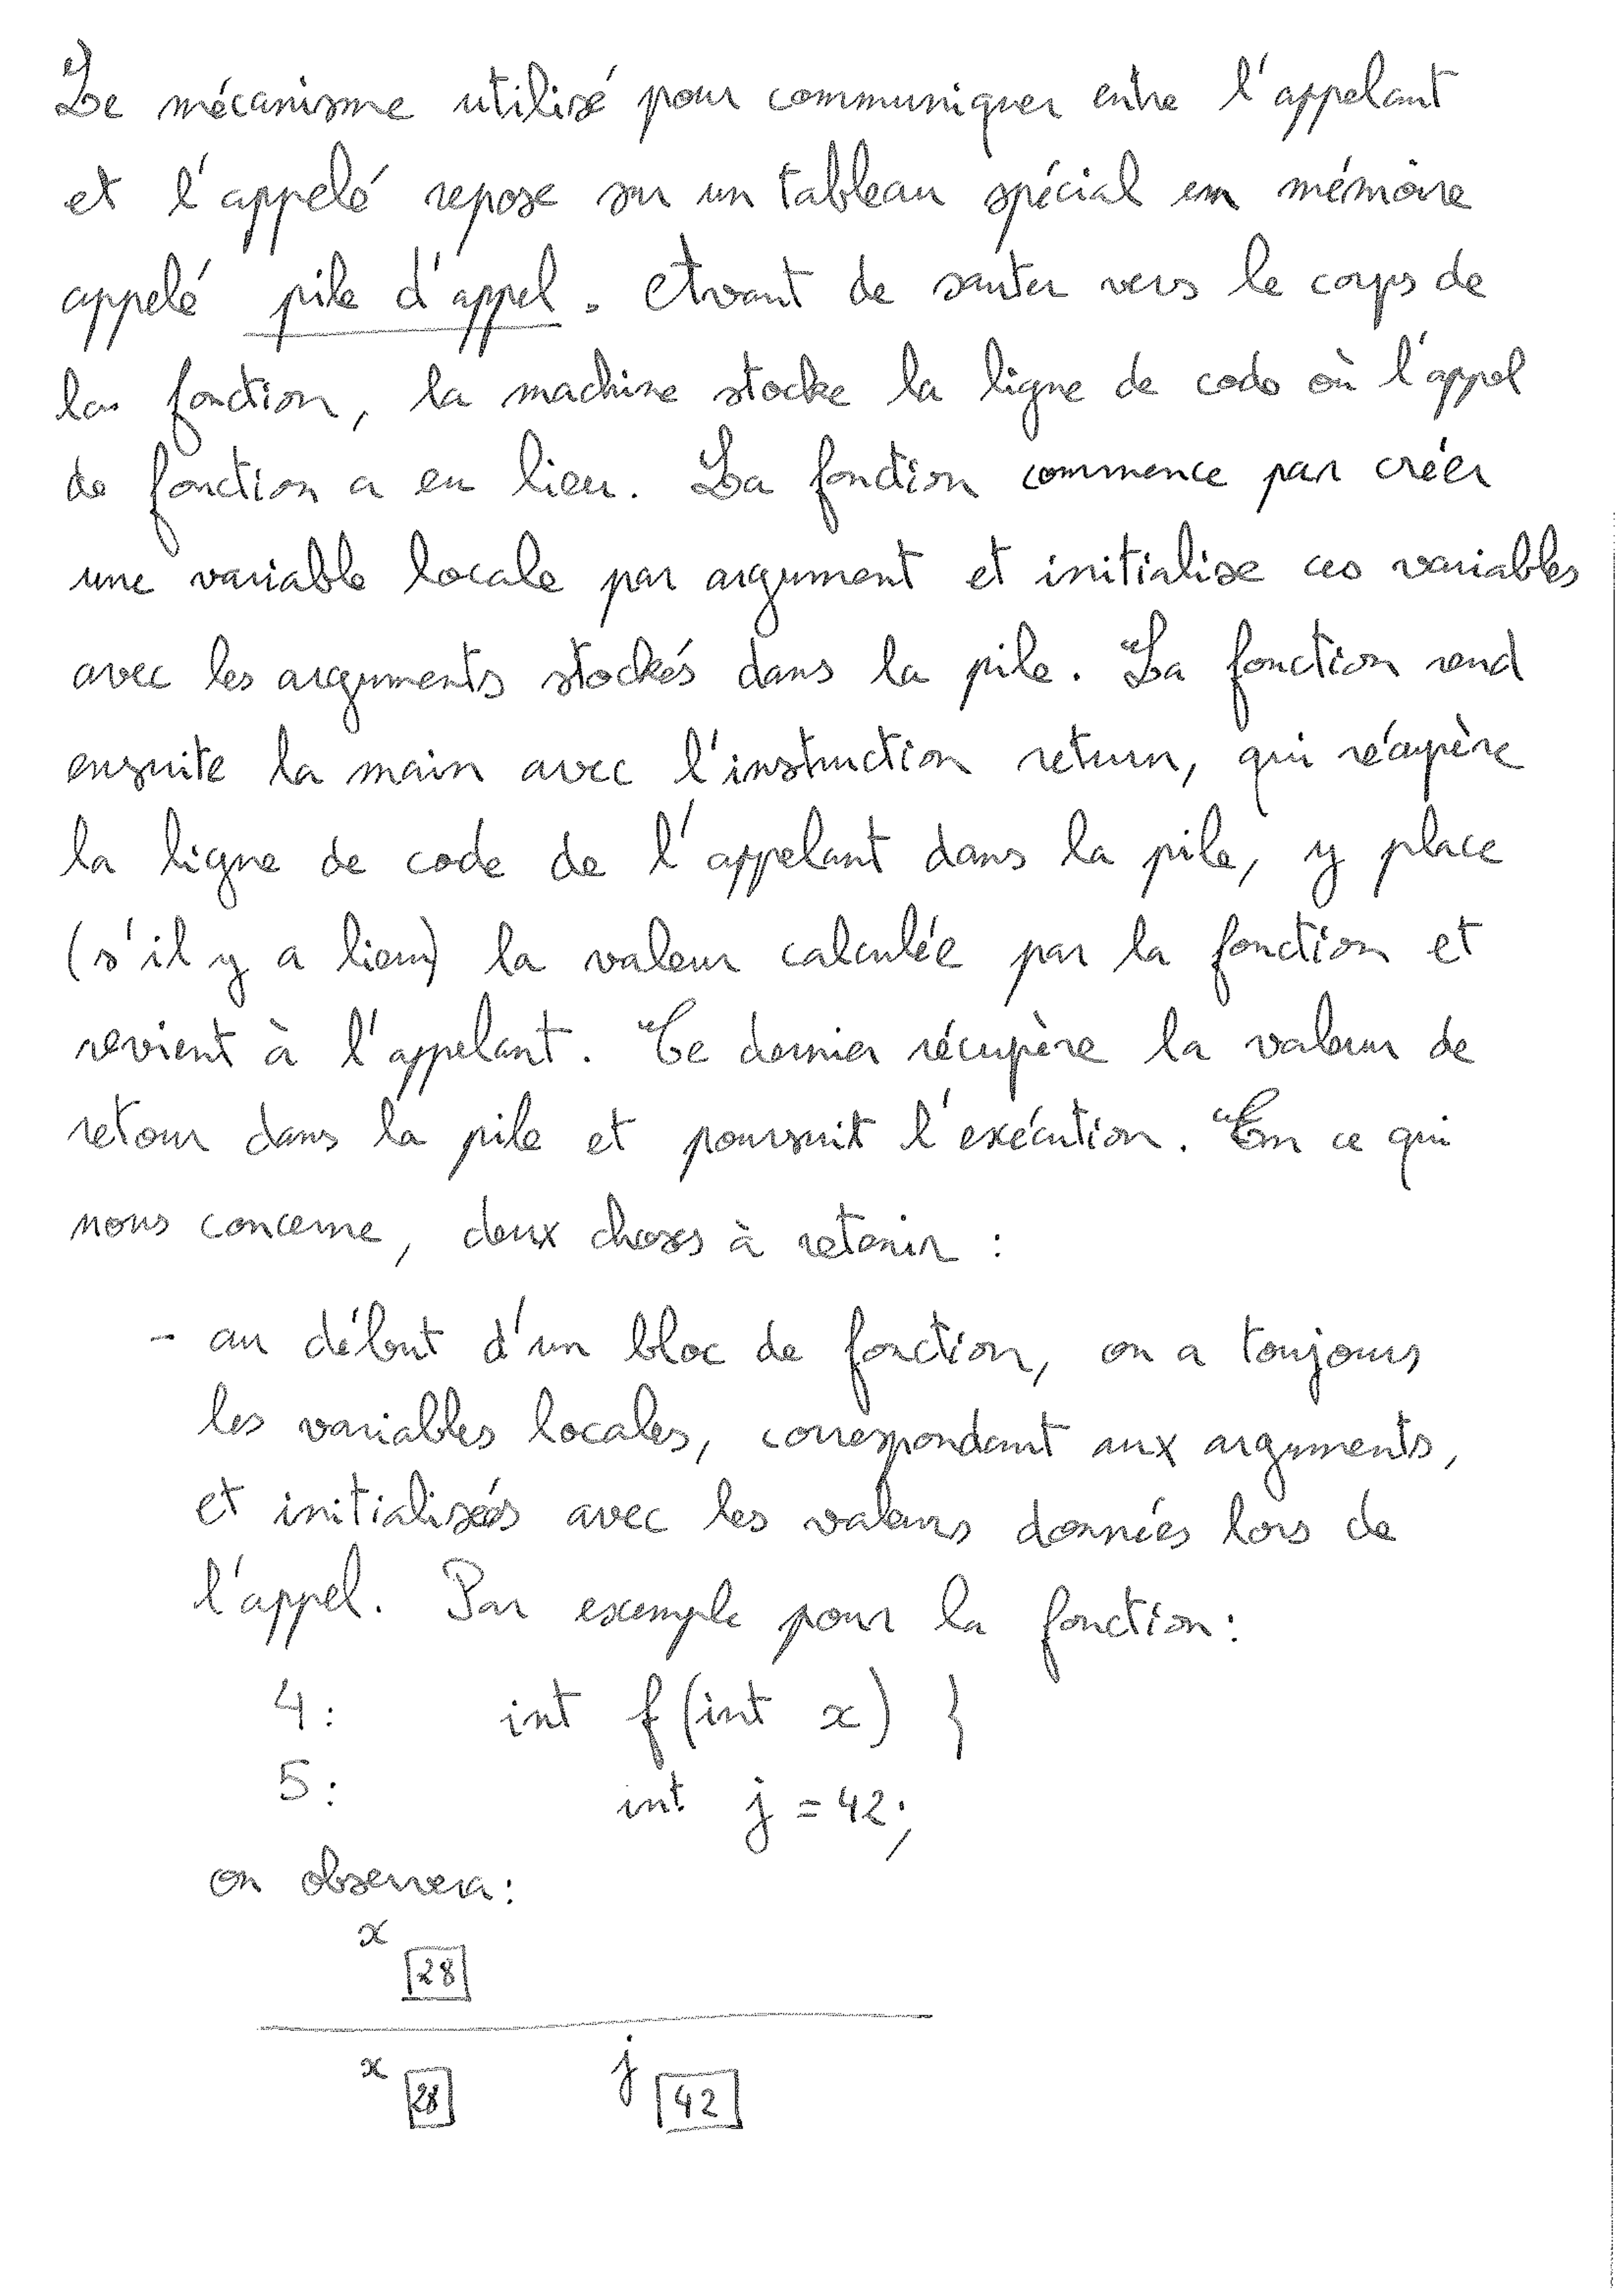 Le mécanisme utilisé pour communiquer entre l'appelant
et l'appelé repose sur un tableau spécial en mémoire
appelé pile d'appel. Avant de sauter vers le corps de
la fonction, la machine stocke la ligne de code où l'appel
de fonction a eu lieu. La fonction commence par créer
une variable locale par argument et initialise ces variables
avec les arguments stockés dans la pile. La fonction rend
ensuite la main avec l'instruction return, qui récupère
la ligne de code de l'appelant dans la pile, y place
(s'il y a lieu) la valeur calculée par la fonction et
revient à l'appelant. Ce dernier récupère la valeur de
retour dans la pile et poursuit l'exécution. En ce qui
nous concerne, deux choses à retenir :
- au début d'un bloc de fonction, on a toujours
les variables locales, correspondant aux arguments,
et initialisées avec les valeurs données lors de
l'appel. Par exemple pour la fonction :
4: int f(int x) }
5: int j = 42;
on observera :
x 28
x 28 j 42